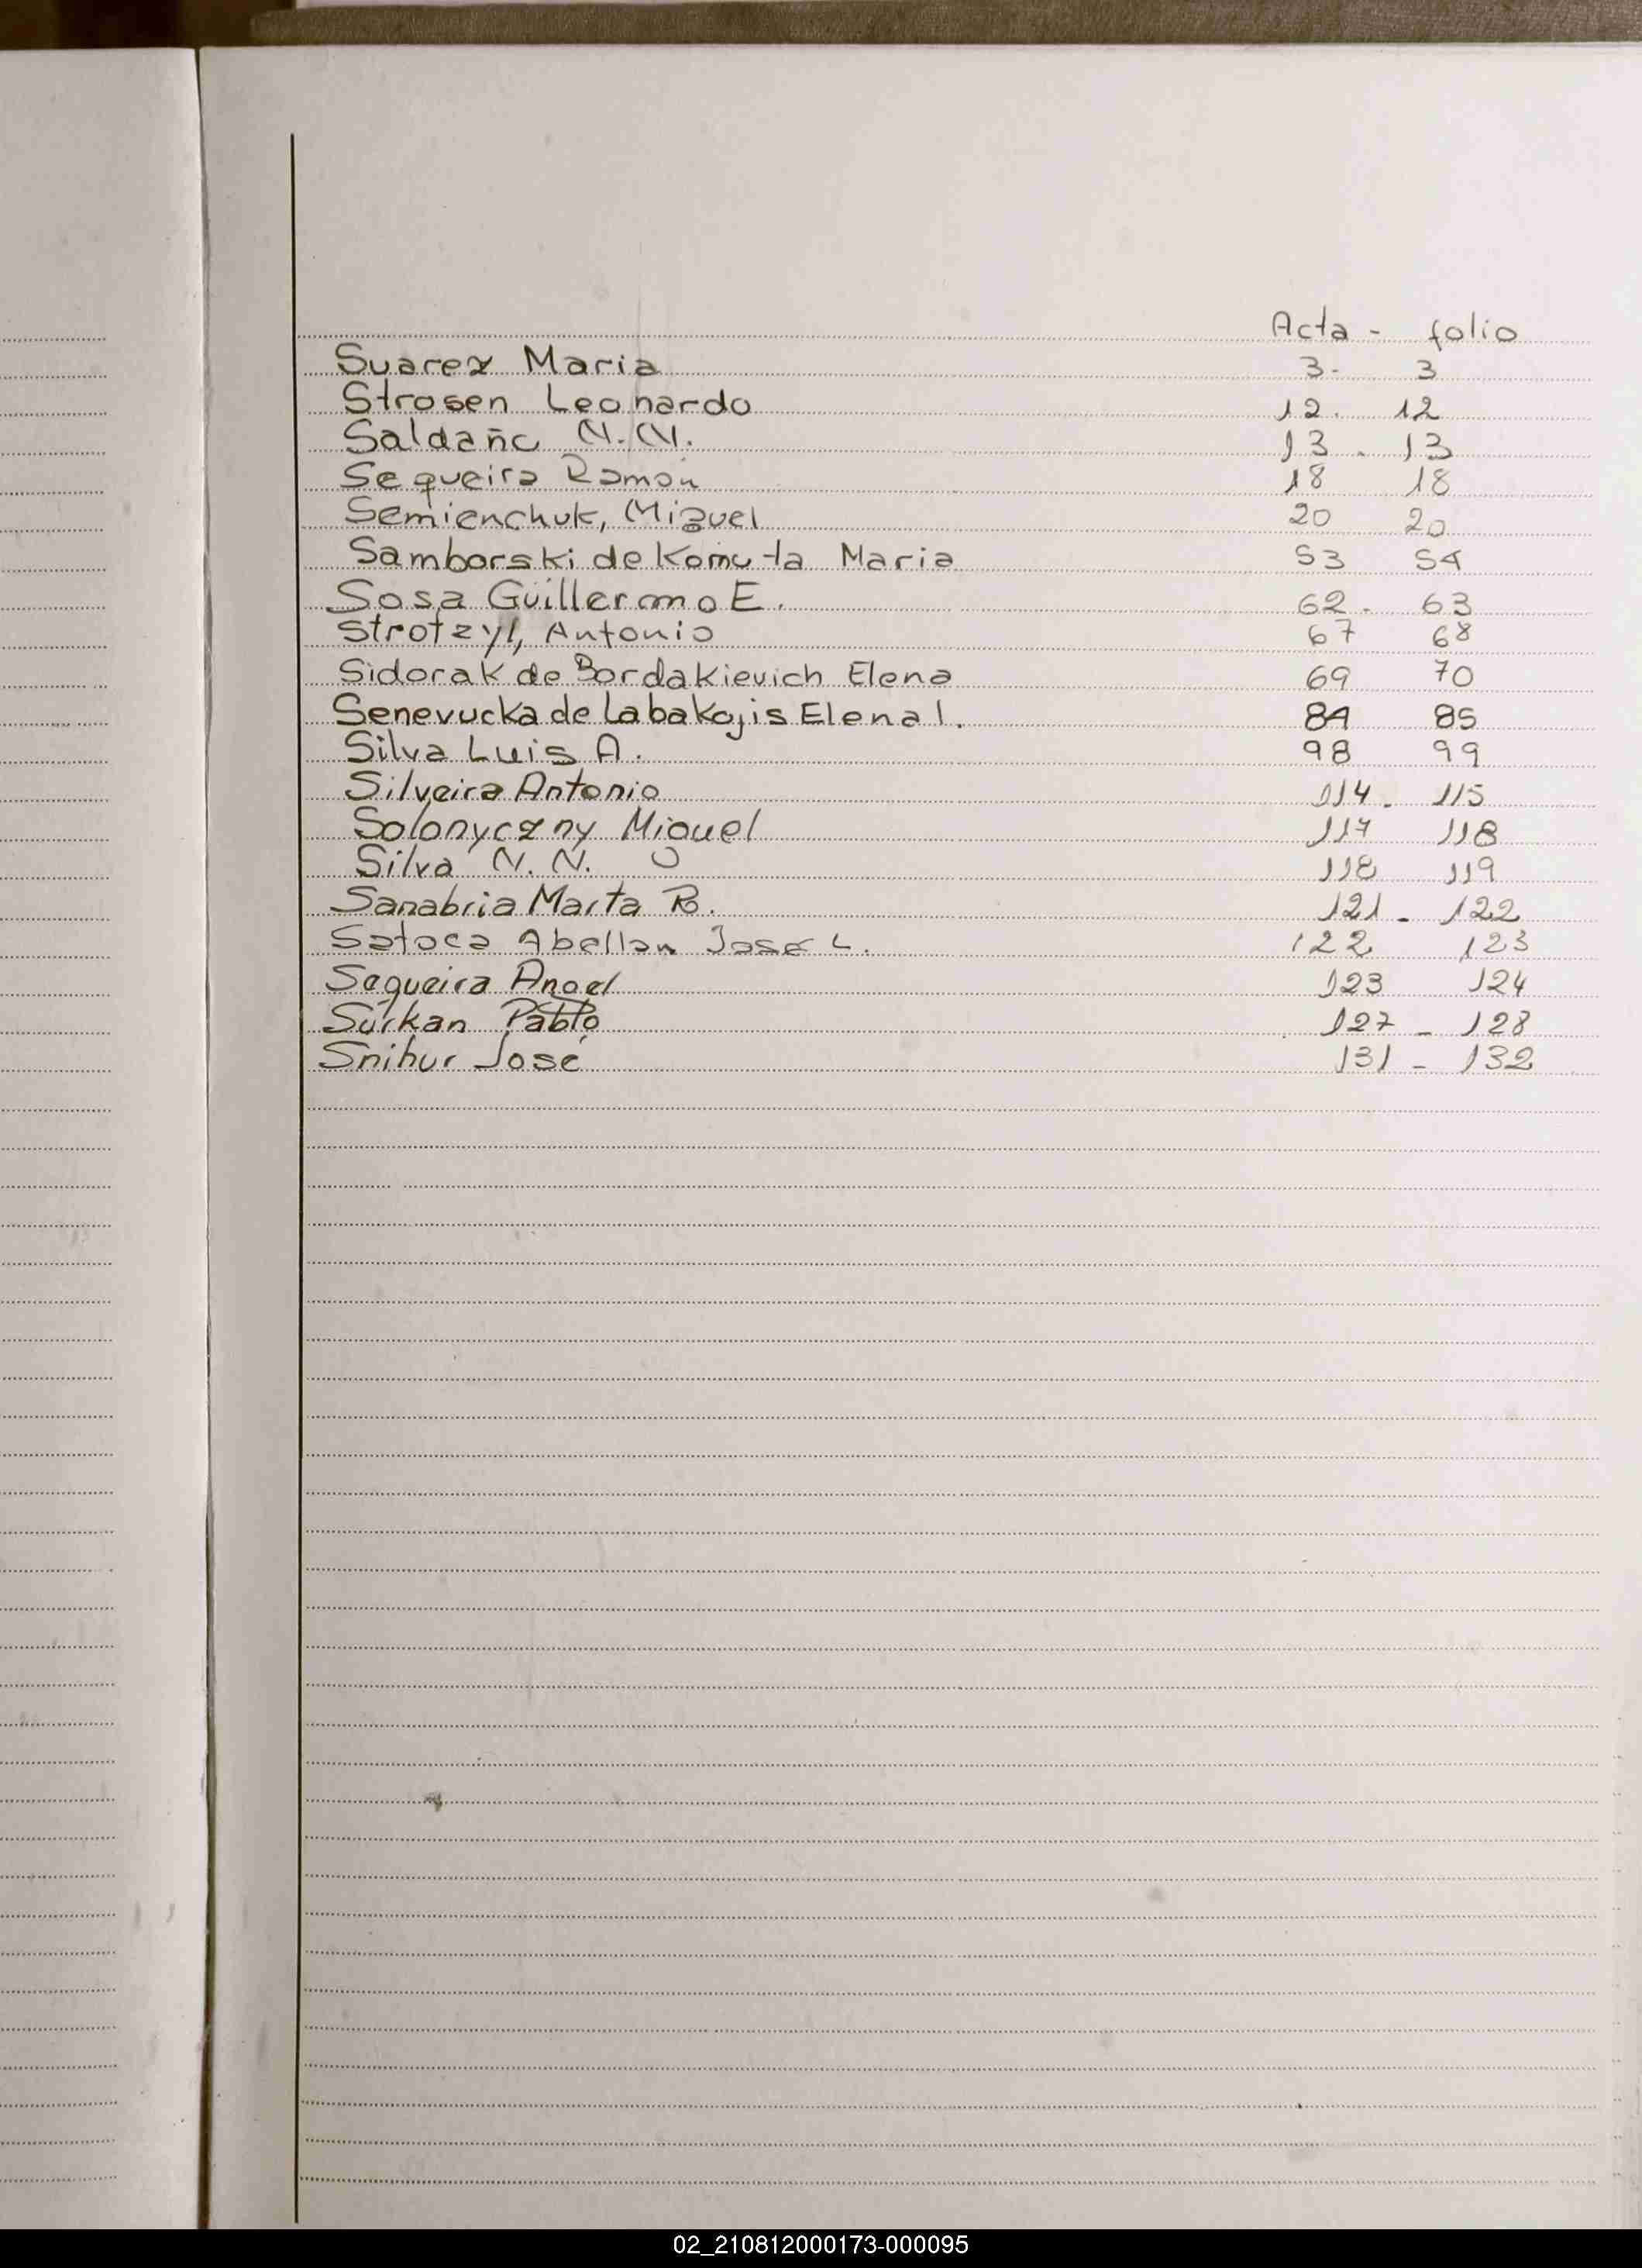 Acta - folio
Suarez Maria 3. 3
Strosen Leonardo 12. 12
Saldaña N.N. 13. 13
Sequeira Ramón 18 18
Semienchuk, Miguel 20 20
Samborski de Komuta Maria 53 54
Sosa Guillermo E. 62. 63
Strotzyl, Antonio 67 68
Sidorak de Bordakievich Elena 69 70
Senevucka de Labakojis Elena I. 84 85
Silva Luis A. 98 99
Silveira Antonio 114. 115
Solonyczny Miguel 117 118
Silva N.N. 118 119
Sanabria Marta R. 121 - 122
Satoca Abellan José L. 122 123
Sequeira Angel 123 124
Surkan Pablo 127 - 128
Snihur José 131 - 132
02_210812000173-000095